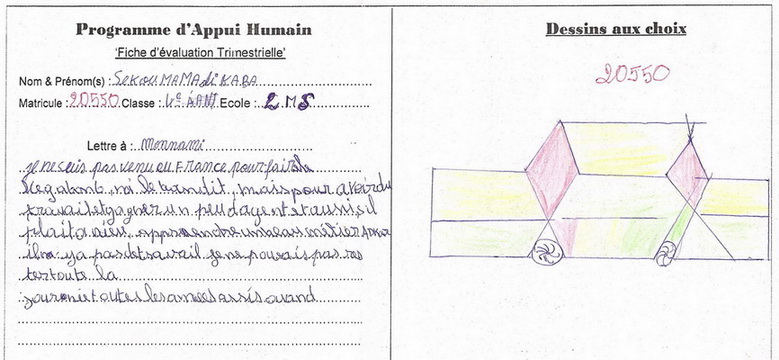 Programme d'Appui Humain
'Fiche d'évaluation Trimestrielle'
Nom & Prénom(s) : Sekou MAMAdi KABA
Matricule : 20550 Classe : 4e ÀNN Ecole : 2 MS
Lettre à : monnami
je ne suis pas venu au FRANCE pour fait le
ni le bandit, mais pour avoir du
travail et gagner un peu dayent et aussi, sil
plait a dieu, appremdre un beau métier
il n'y a pas de travail je ne pouvais pas res
ter toute la
journe toutes les annees assis quand
Dessins aux choix
20550